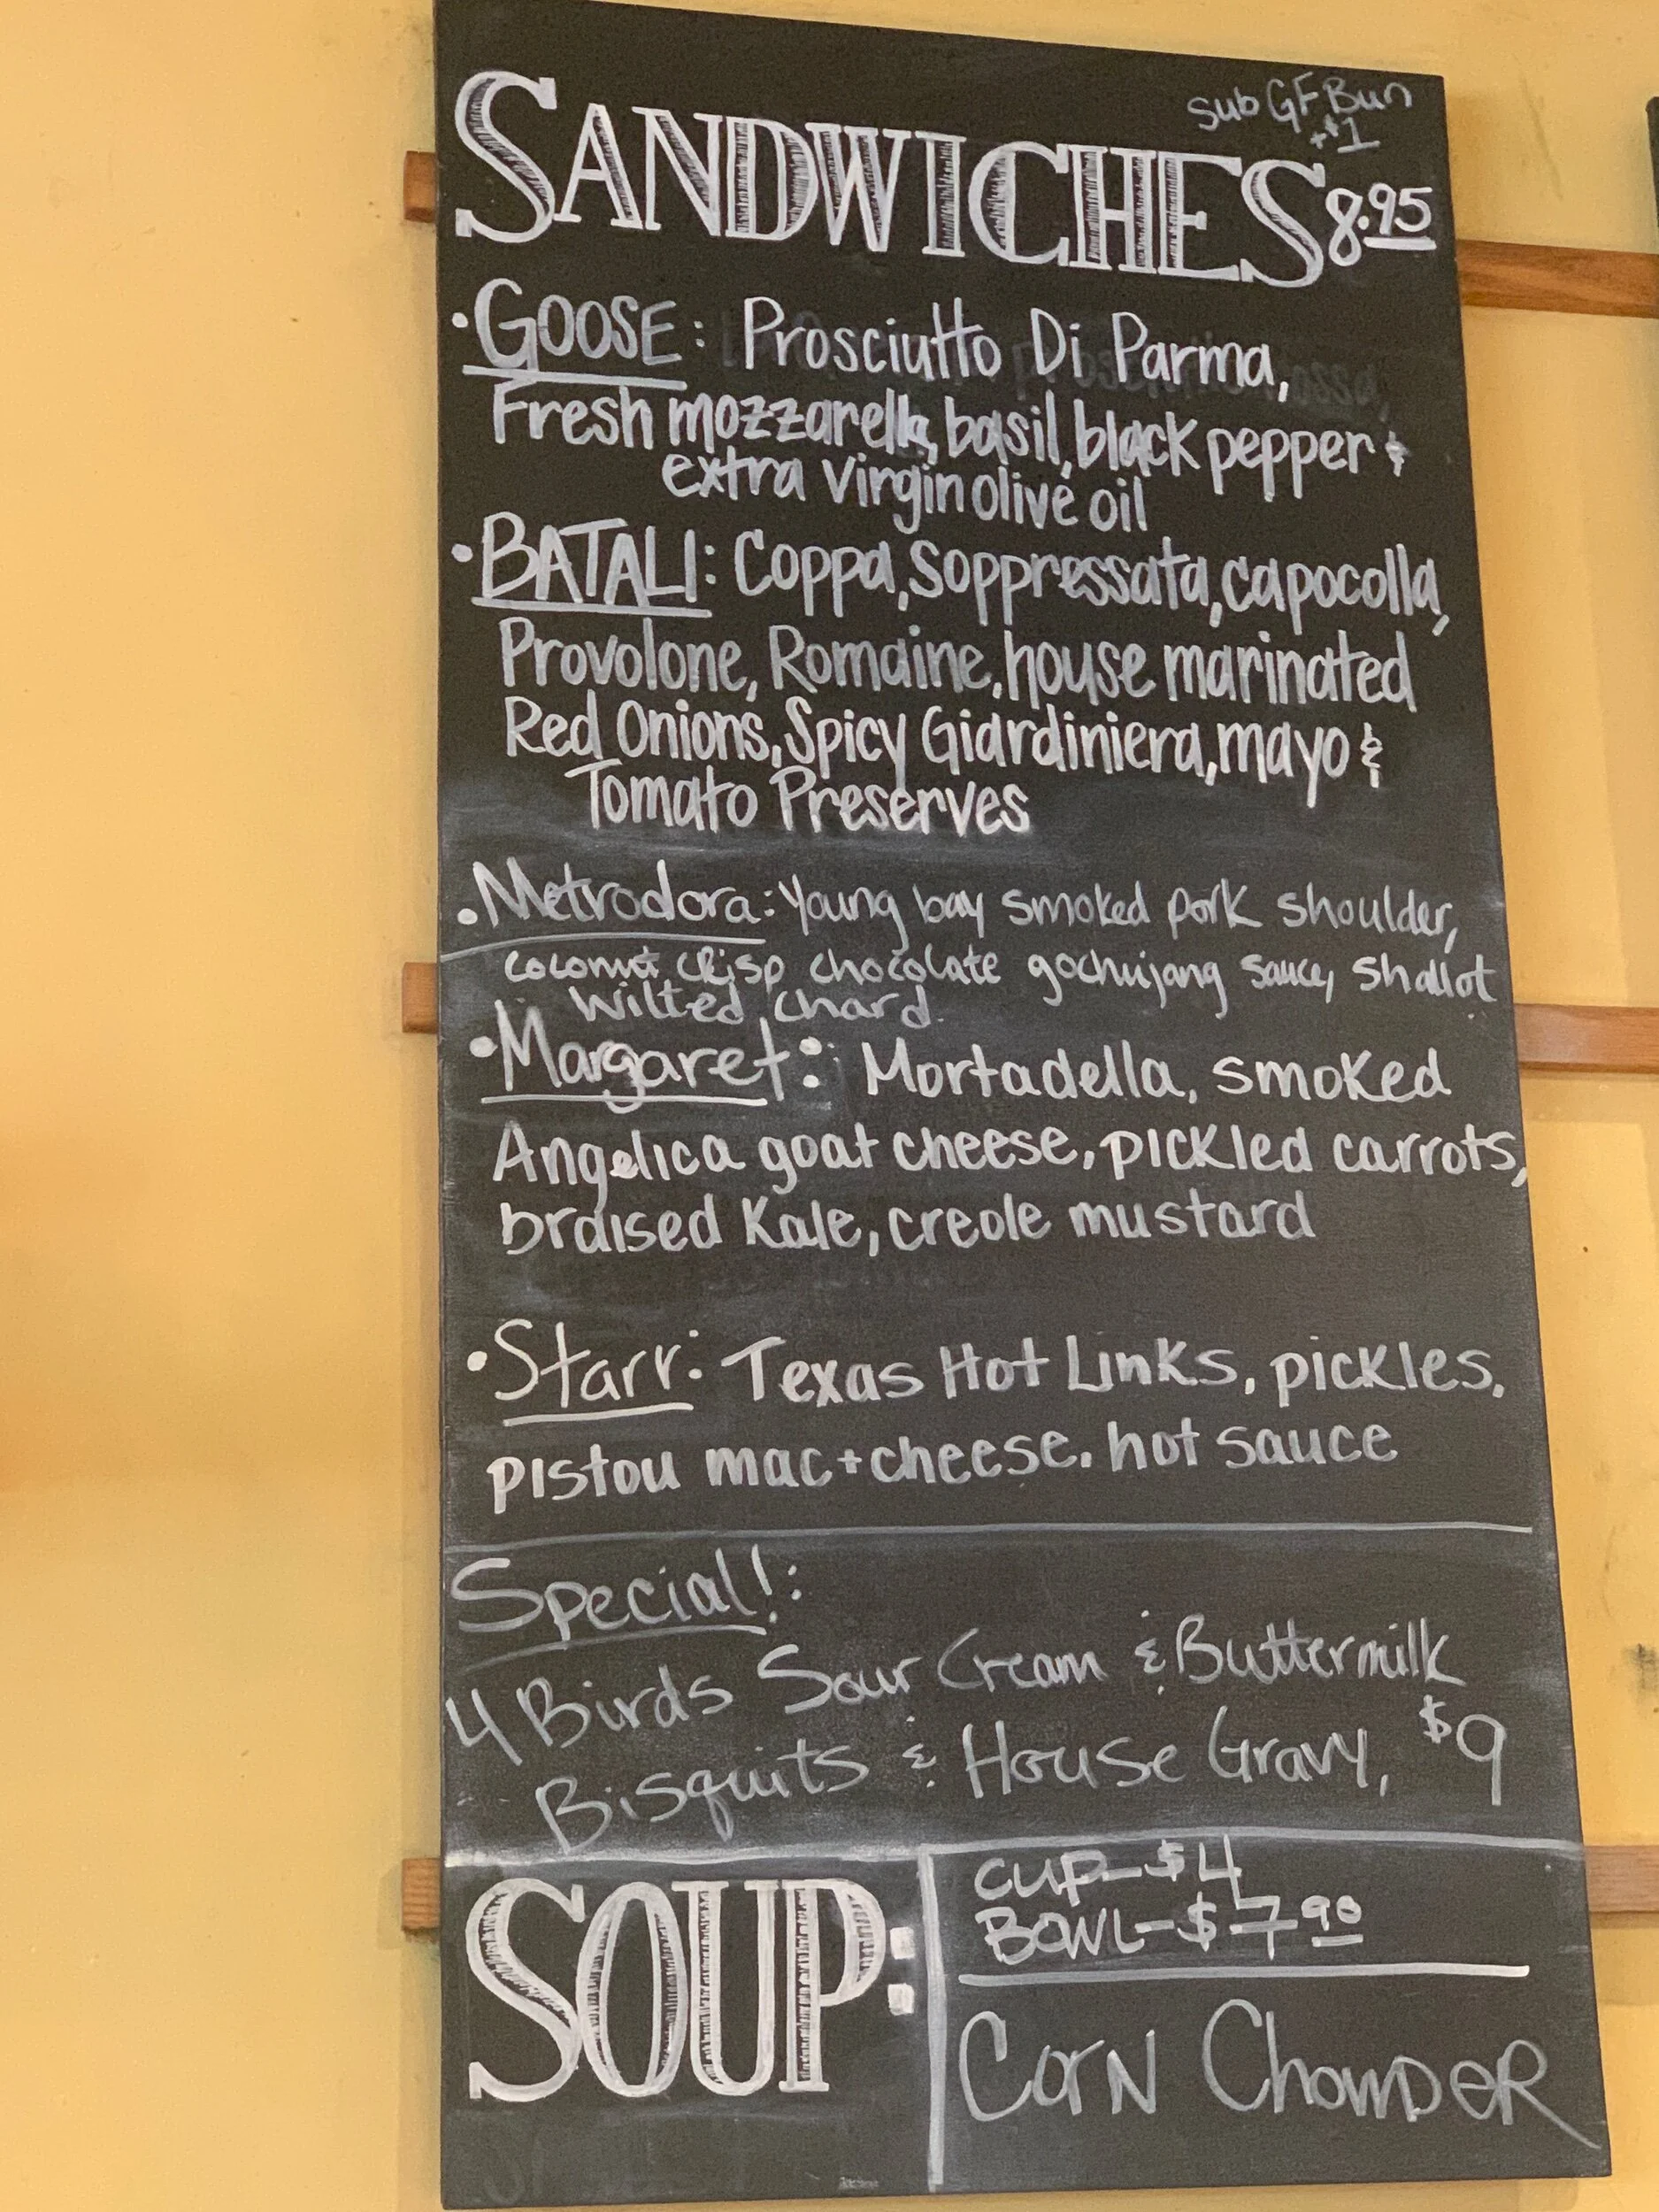 Sub GF Bun
+$1
SANDWICHES 8.95
• GOOSE: Prosciutto Di Parma,
Fresh mozzarella, basil, black pepper &
extra virgin olive oil
• BATALI: Coppa, Soppressata, capocolla,
Provolone, Romaine, house marinated
Red Onions, Spicy Giardiniera, mayo &
Tomato Preserves
• Metrodora: Young bay smoked pork shoulder,
coconut crisp, chocolate gochujang sauce, shallot
wilted chard.
• Margaret: Mortadella, smoked
Angelica goat cheese, pickled carrots,
braised Kale, creole mustard
• Starr: Texas Hot Links, pickles,
pistou mac+cheese, hot sauce
Special!:
4 Birds Sour Cream & Buttermilk
Bisquits & House Gravy, $9
SOUP:
CUP-$4
BOWL-$7.90
Corn Chowder